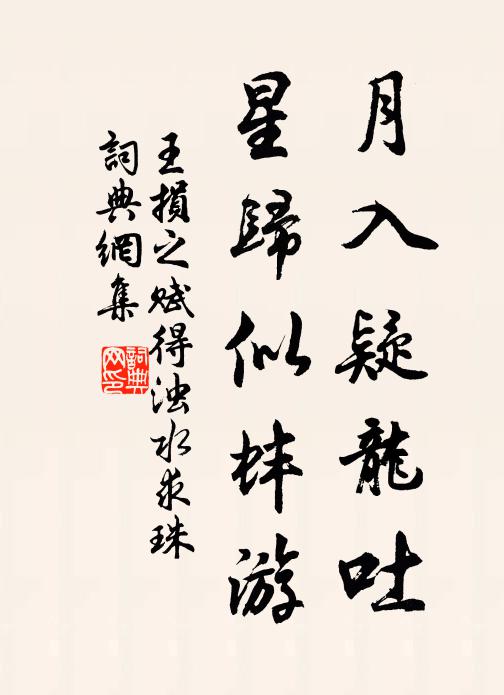 月入疑龍吐
星歸似蚌游
王損之赋得浊水求珠
詞典網集
詞典
网印